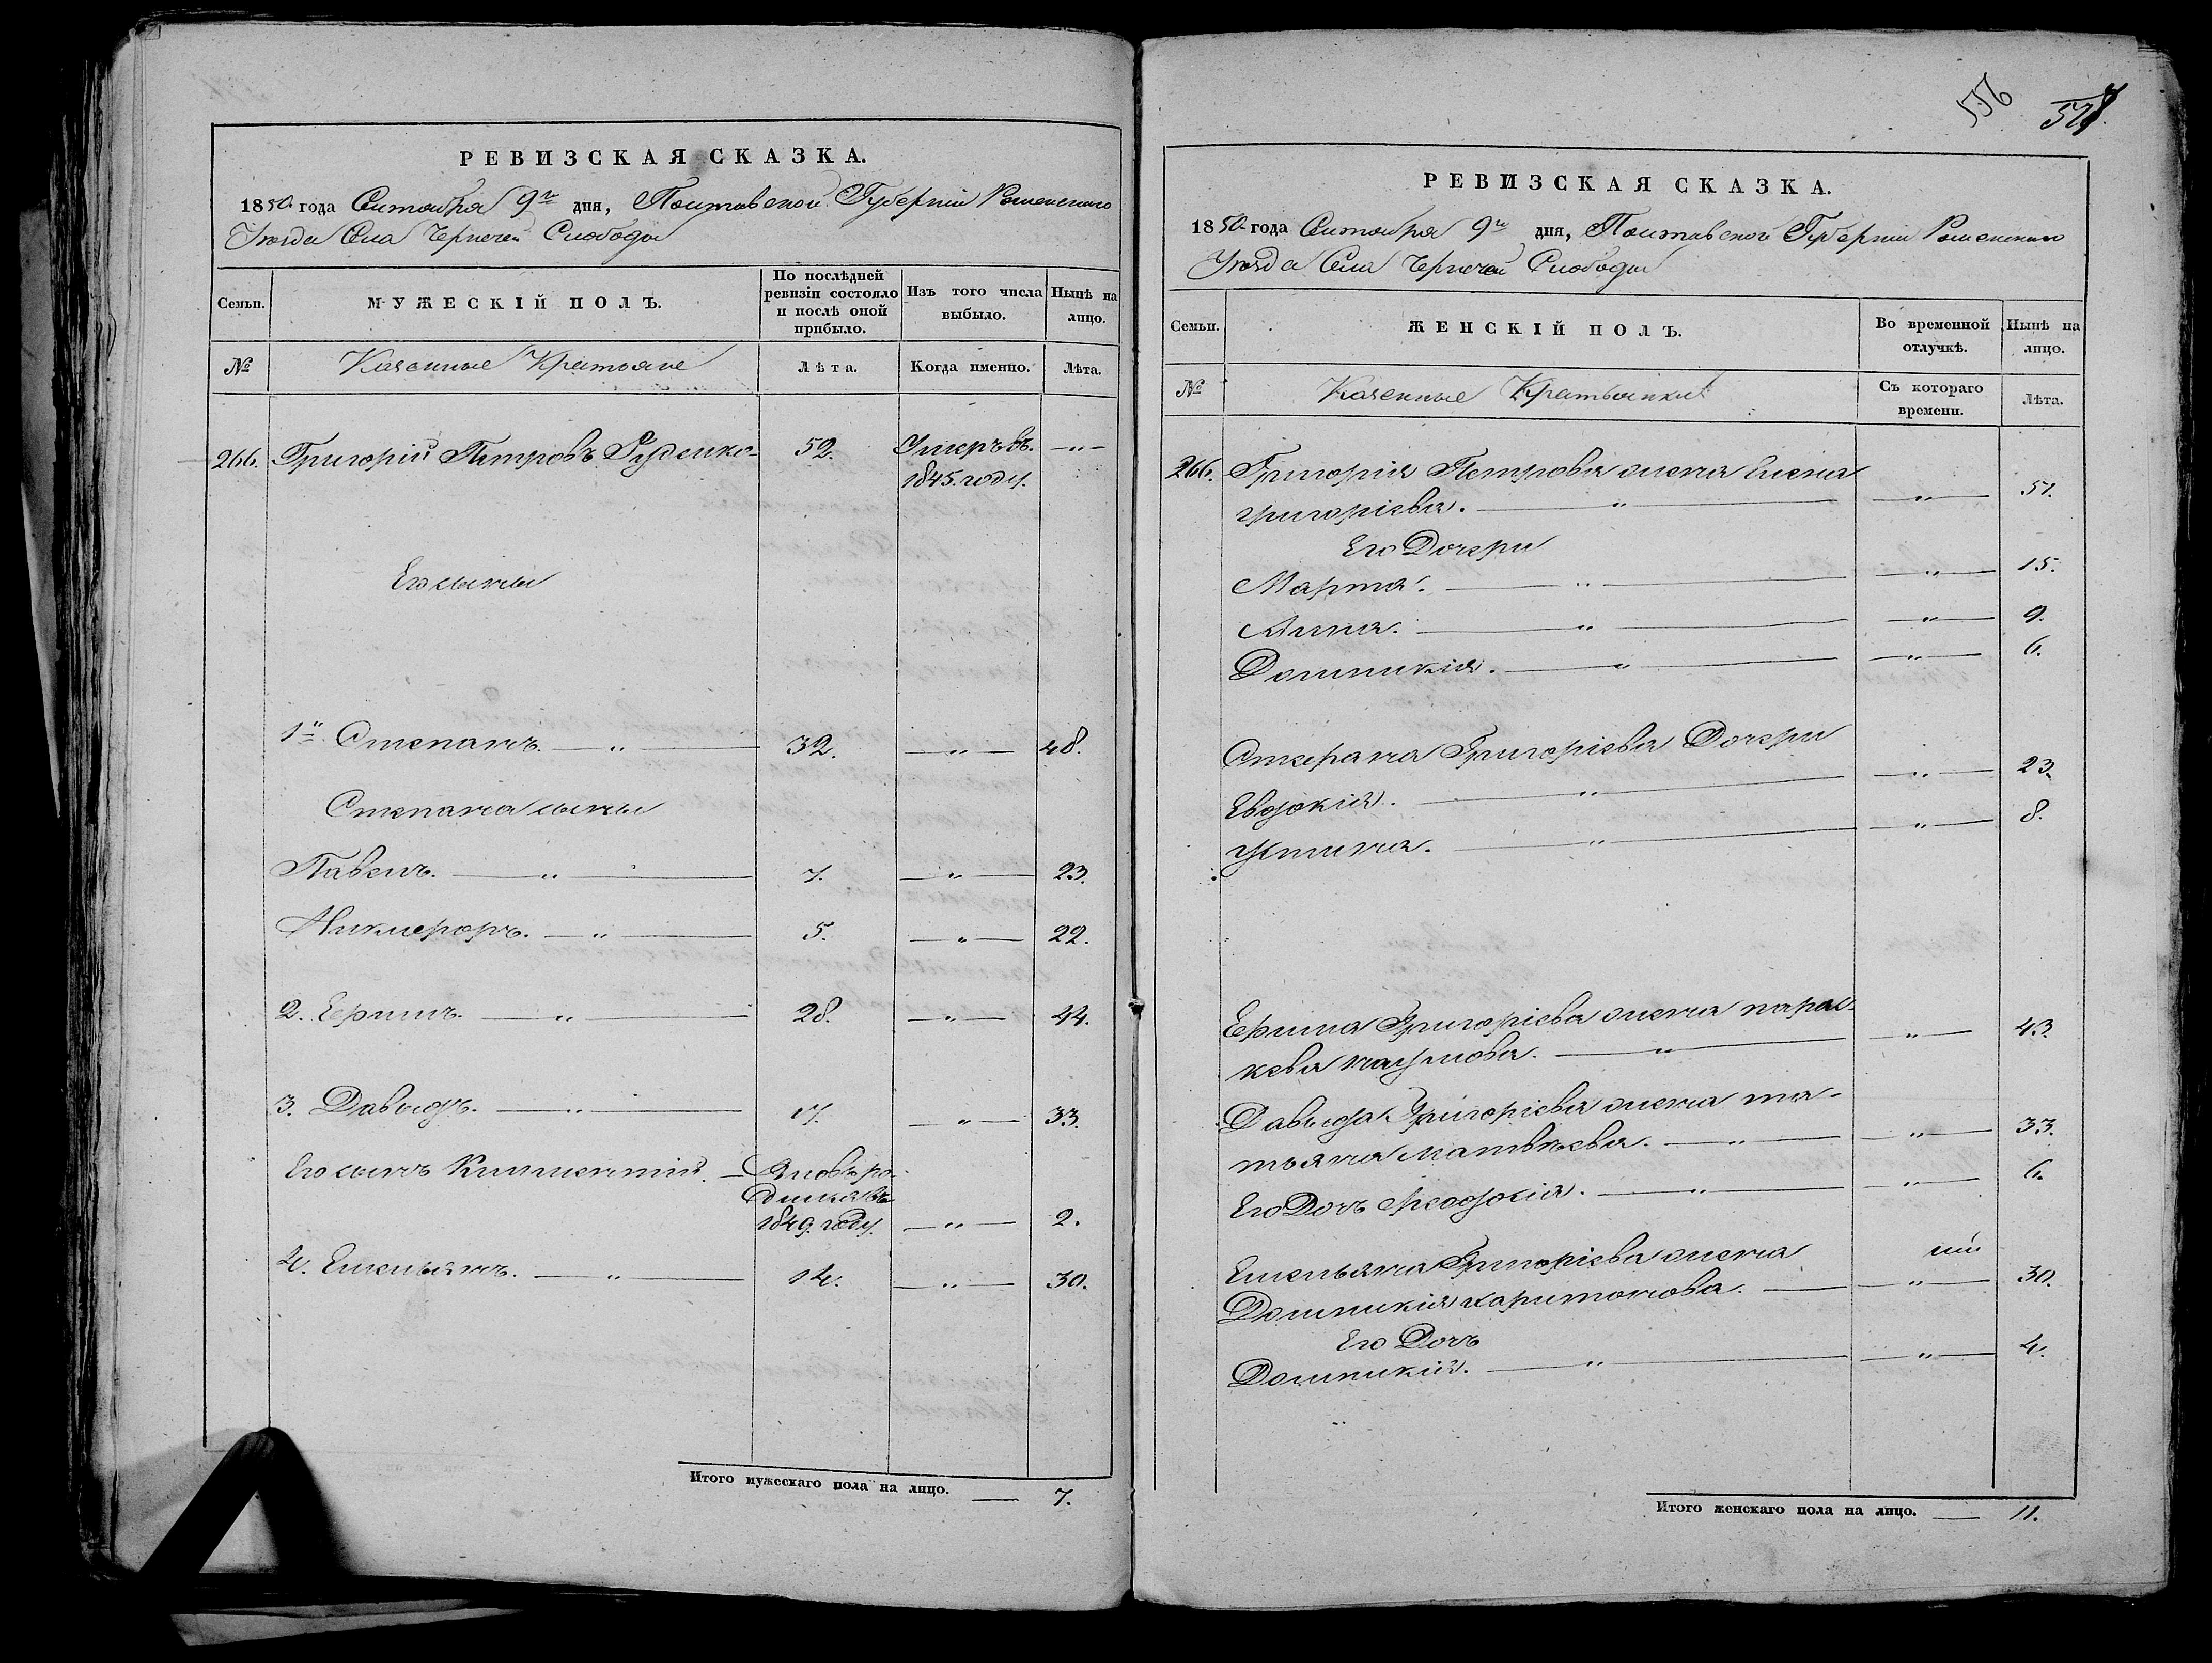 РЕВИЗСКАЯ СКАЗКА.
1850 года Сентября 9го дня, Полтавской Губерніи Роменскаго
Уѣзда Села Чернечей Слободы
Семьи.
МУЖЕСКІЙ ПОЛЪ.
По послѣдней ревизіи состояло и послѣ оной прибыло.
Изъ того числа выбыло.
Нынѣ на лицо.
№
Казенные Крестьяне
Лѣта.
Когда именно.
Лѣта.
266. Григорій Петровъ Руденко 52. Умеръ въ —"—
1845. году.
Его сыны
1й Степанъ. —"— 32. —"— 48.
Степана сыны
Павелъ. —"— 7. —"— 23.
Никифоръ. —"— 5. —"— 22.
2. Ефимъ. —"— 28. —"— 44.
3. Давыдъ. —"— 17. —"— 33.
Его сынъ Климентій. — Вновь ро-
дился въ
1849. году. —"— 2.
4. Емельянъ. —"— 14. —"— 30.
Итого мужескаго пола на лицо. — 7.
578
РЕВИЗСКАЯ СКАЗКА.
1850 года Сентября 9го дня, Полтавской Губерніи Роменскаго
Уѣзда Села Чернечей Слободы
Семьи.
ЖЕНСКІЙ ПОЛЪ.
Во временной отлучкѣ.
Нынѣ на лицо.
№
Казенные Крестьянки
Съ котораго времени.
Лѣта.
266. Григорія Петрова жена Елена
григоріева. —"— —"— 57.
Его Дочери
Марфа. —"— —"— 15.
Анна. —"— —"— 9.
Домникія. —"— —"— 6.
Стефана Григоріева Дочери
Евдокія. —"— —"— 23.
Устина. —"— —"— 8.
Ефима Григоріева жена парас-
кева наумова. —"— —"— 43.
Давыда Григоріева жена та-
тьяна матвѣева. —"— —"— 33.
Его Дочь Феодосія. —"— —"— 6.
Емельяна Григоріева жена
Домникія харитонова. — —"— 30.
Его Дочь
Домникія. —"— —"— 4.
Итого женскаго пола на лицо. — 11.